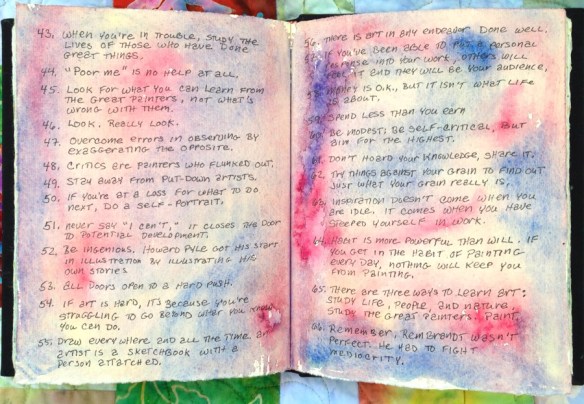 43. When you're in trouble, study the
lives of those who have done
great things.
44. "Poor me" is no help at all.
45. Look for what you can learn from
the great painters, not what's
wrong with them.
46. Look. Really look.
47. Overcome errors in observing by
exaggerating the opposite.
48. Critics are painters who flunked out.
49. Stay away from put-down artists.
50. If you're at a loss for what to do
next, do a self-portrait.
51. Never say "I can't." It closes the door
to potential development.
52. Be ingenious. Howard Pyle got his start
in illustration by illustrating his
own stories
53. All doors open to a hard push.
54. If art is hard, it's because you're
struggling to go beyond what you know
you can do.
55. Draw everywhere and all the time. An
artist is a sketchbook with a
person attatched.
56. There is art in any endeavor done well.
If you've been able to put a personal
response into your work, others will
feel it and they will be your audience.
Money is O.K., but it isn't what life
is about.
Spend less than you earn
60. Be modest; be self-critical, but
aim for the highest.
61. Don't hoard your knowledge, share it.
62. Try things against your grain to find out
just what your grain really is.
63. Inspiration doesn't come when you
are idle. It comes when you have
steeped yourself in work.
64. Habit is more powerful than will. If
you get in the habit of painting
every day, nothing will keep you
from painting.
65. There are three ways to learn art:
Study life, people, and nature.
Study the great painters. Paint.
66. Remember, Rembrandt wasn't
perfect. He had to fight
mediocrity.